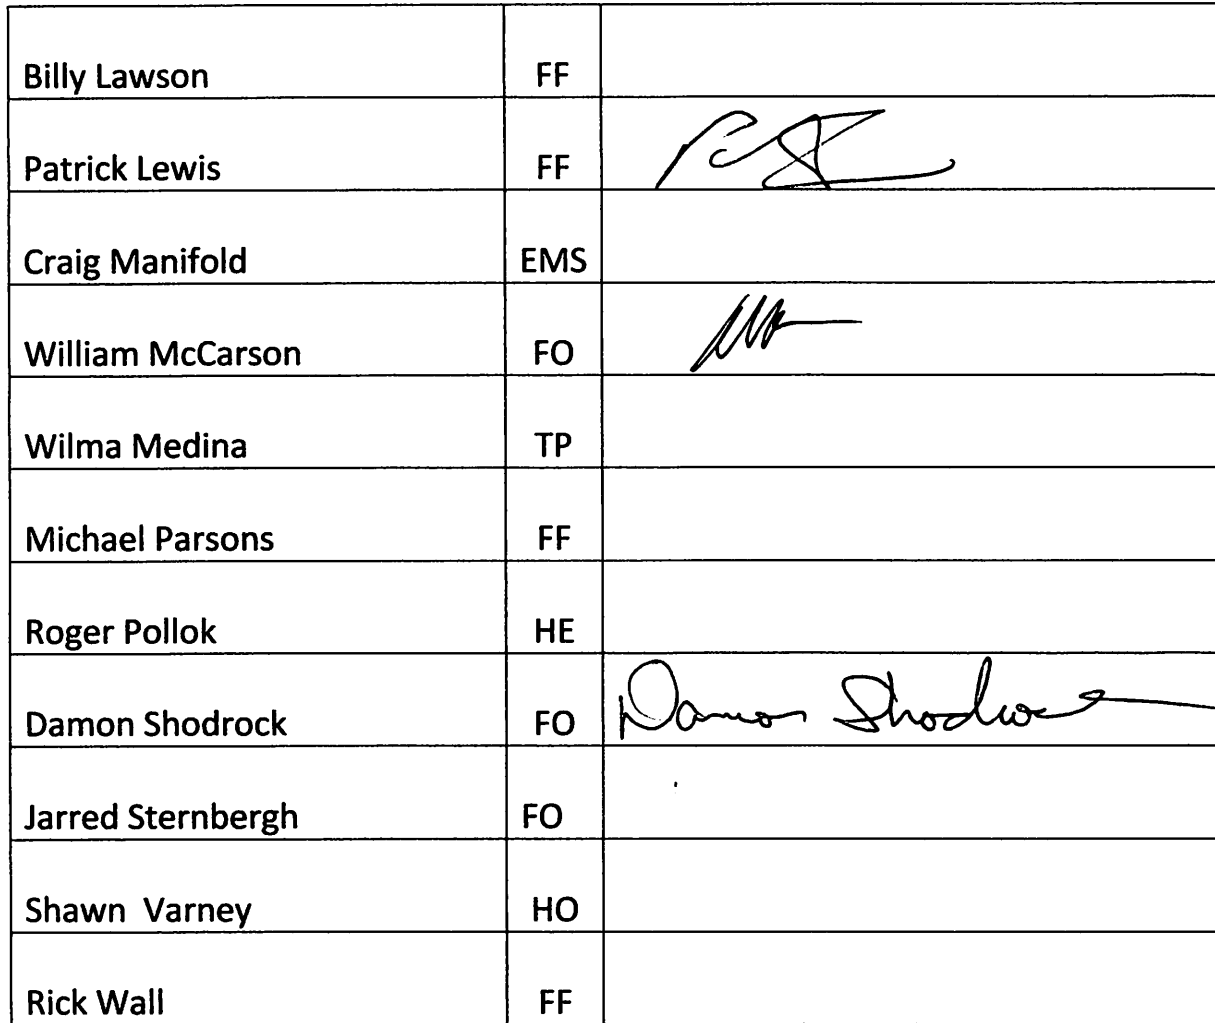 Billy Lawson FF
Patrick Lewis FF
Craig Manifold EMS
William McCarson FO
Wilma Medina TP
Michael Parsons FF
Roger Pollok HE
Damon Shodrock FO Damon Shodrock
Jarred Sternbergh FO
Shawn Varney HO
Rick Wall FF